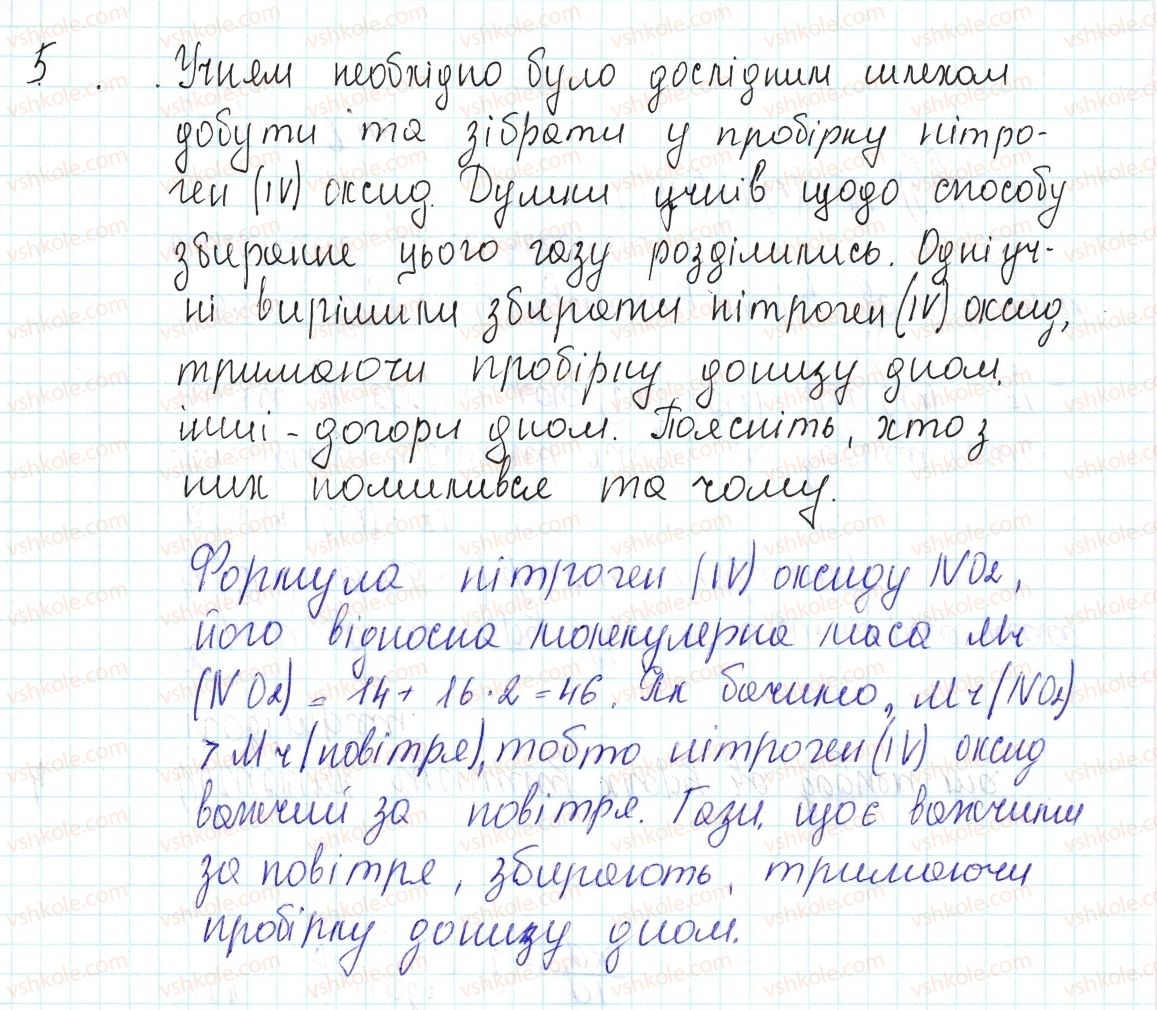 5. Учням необхідно було дослідним шляхом
добути та зібрати у пробірку нітро-
ген (IV) оксид. Думки учнів щодо способу
збирання цього газу розділились. Одні уч-
ні вирішили збирати нітроген (IV) оксид,
тримаючи пробірку донизу дном,
інші - догори дном. Поясніть, хто з
них помилився та чому.
Формула нітроген (IV) оксиду NO2,
його відносна молекулярна маса Mr
(NO2) = 14 + 16 · 2 = 46. Як бачимо, Mr (NO2)
> Mr (повітря), тобто нітроген (IV) оксид
важчий за повітря. Гази, що є важчими
за повітря, збирають, тримаючи
пробірку донизу дном.